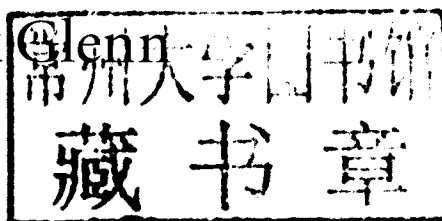 Glenn
常州大学图书馆
藏书章